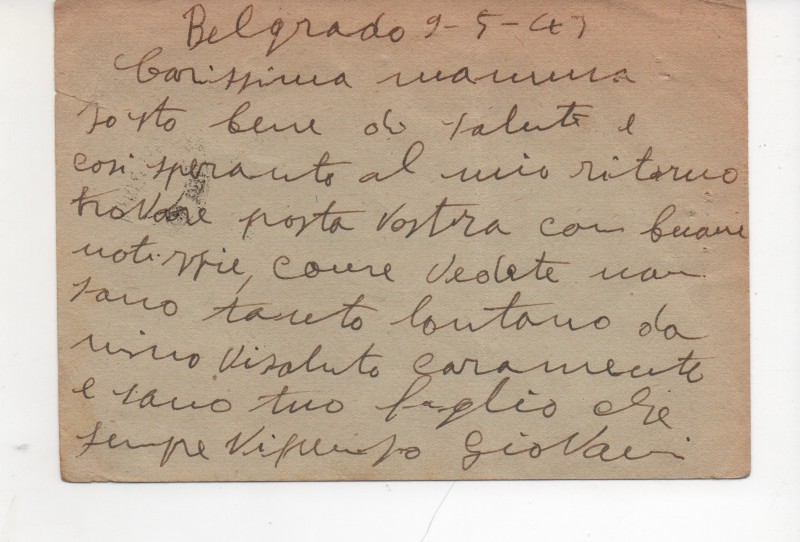 Belgrado 9-5-43
Carissima mamma
sosto bene di salute e
cosi speranto al mio ritorno
trovare posta vostra con buone
notissie, come vedete non
sono tanto lontano da
visaluto caramente
e sono tuo figlio che
sempre vi penso Giovani